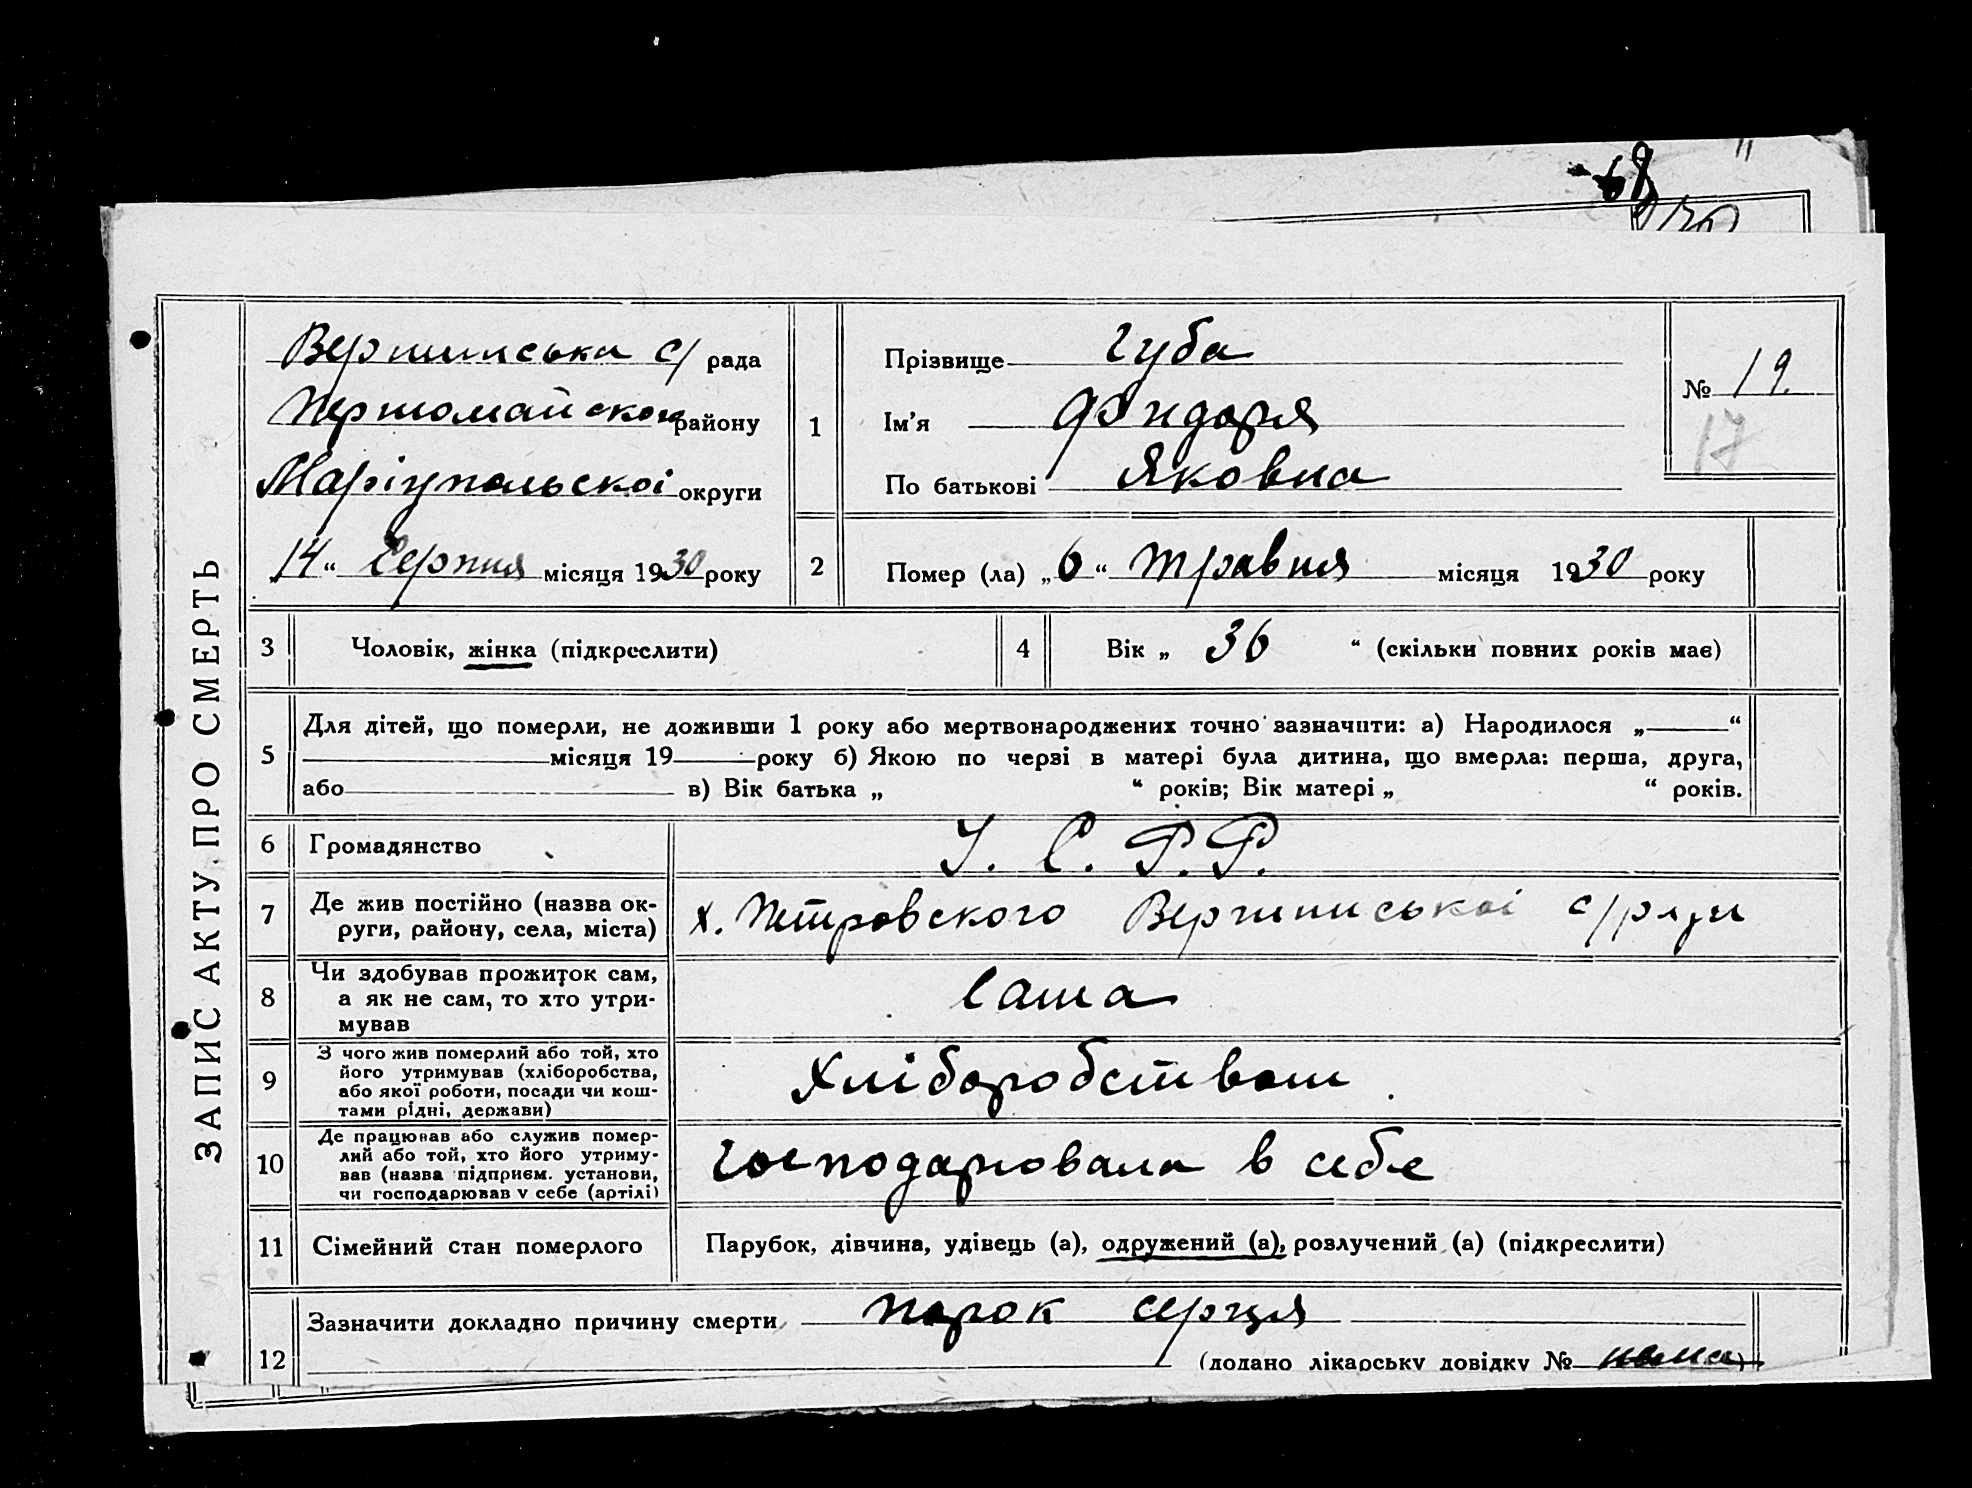 68
ЗАПИС АКТУ ПРО СМЕРТЬ
Вершинська с/ рада
Першомайского району
Маріупольскоі округи
14 “ Серпня місяця 1930 року
1
Прізвище Губа
Ім'я Фндоря
По батькові Яковна
№ 19.
17
2
Помер (ла) „6“ травня місяця 1930 року
3 Чоловік, жінка (підкреслити)
4 Вік „ 36 “ (скільки повних років має)
5
Для дітей, що померли, не доживши 1 року або мертвонароджених точно зазначити: а) Народилося „ “
місяця 19 року б) Якою по черзі в матері була дитина, що вмерла: перша, друга,
або в) Вік батька „ “ років; Вік матері „ “ років.
6 Громадянство У. С. Р. Р.
7 Де жив постійно (назва ок-
руги, району, села, міста)
х. Петровского Вершинськоі с/ради
8 Чи здобував прожиток сам,
а як не сам, то хто утри-
мував
Сама
9 З чого жив померлий або той, хто
його утримував (хліборобства,
або якої роботи, посади чи кош-
тами рідні, держави)
Хліборобством
10 Де працював або служив помер-
лий або той, хто його утриму-
вав (назва підприєм. установи,
чи господарював у себе (артілі)
Господарювала в себе
11 Сімейний стан померлого Парубок, дівчина, удівець (а), одружений (а), розлучений (а) (підкреслити)
12 Зазначити докладно причину смерти порок серця
(додано лікарську довідку № нема)